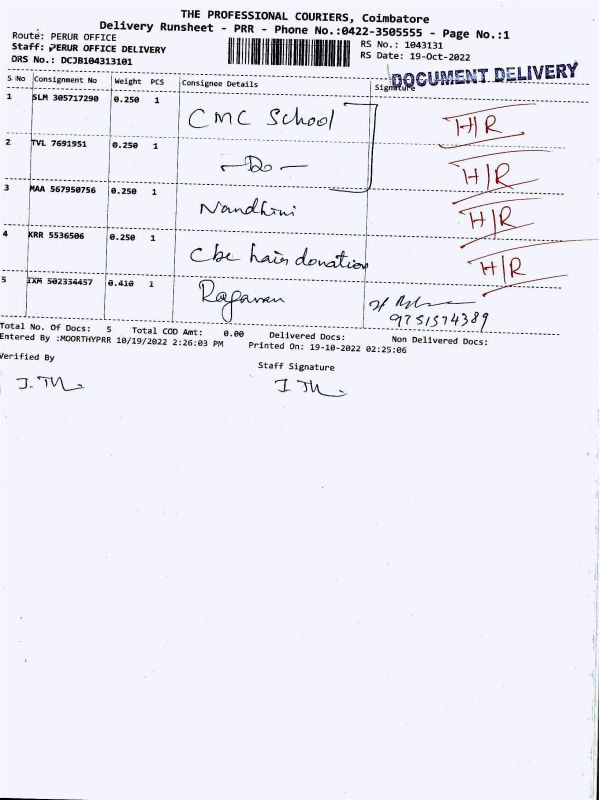 THE PROFESSIONAL COURIERS, Coimbatore
Delivery Runsheet - PRR - Phone No.:0422-3505555 - Page No.:1
Route: PERUR OFFICE
Staff: PERUR OFFICE DELIVERY
DRS No.: DCJB104313101
RS No.: 1043131
RS Date: 19-Oct-2022
DOCUMENT DELIVERY
S No Consignment No Weight PCS Consignee Details Signature
1 SLM 305717290 0.250 1 CMC School H/R
2 TVL 7691951 0.250 1 -Do- H/R
3 MAA 567950756 0.250 1 Nandhini H/R
4 KRR 5536506 0.250 1 Cbe hair donation H/R
5 IXM 502334457 0.410 1 Ragavan
9751574389
Total No. Of Docs: 5 Total COD Amt: 0.00 Delivered Docs: Non Delivered Docs:
Entered By :MOORTHYPRR 10/19/2022 2:26:03 PM Printed On: 19-10-2022 02:25:06
Verified By
Staff Signature